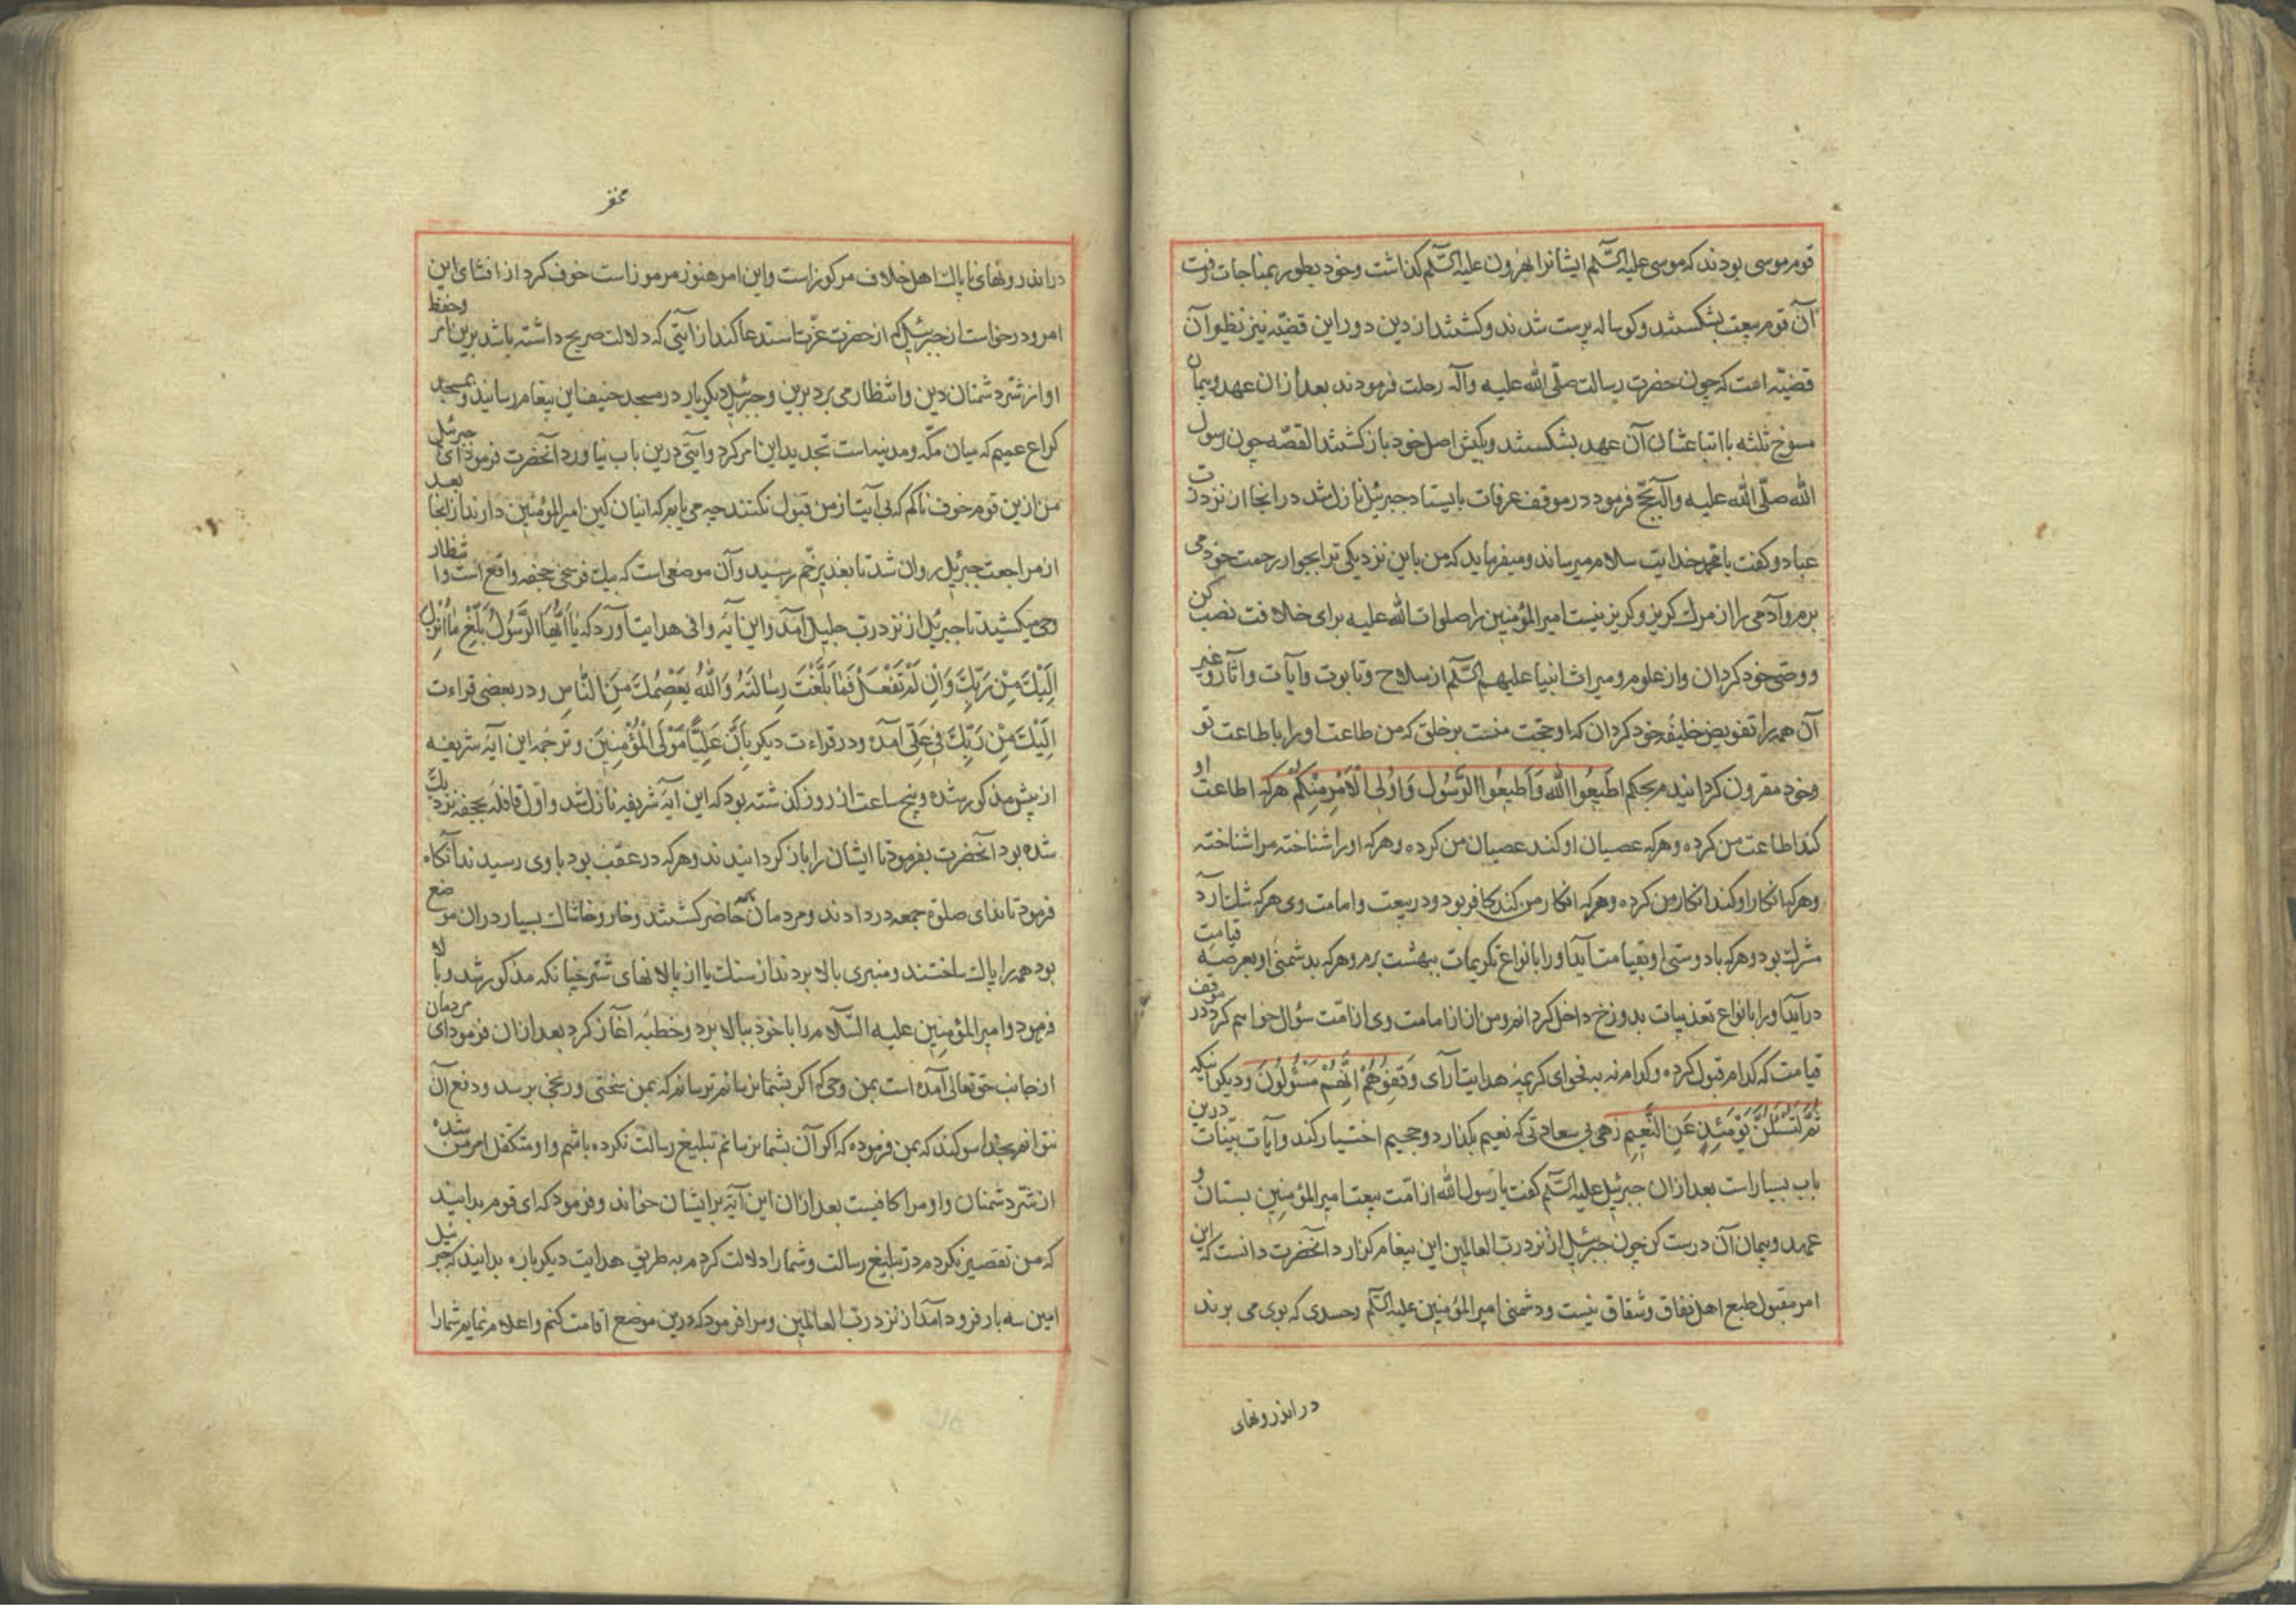 قوم موسی بودند که موسی علیه السّلم ایشانرا بهرون علیه السّلم کذاشت وخود بطور بمناجات رفت
آن قوم بیعت بشکستند وکوساله پرست شدند وکشتند از دین دور این قضیّه نیز نظیر آن
قضیّه است که چون حضرت رسالت صلّی الله علیه وآله رحلت فرمودند بعد ازان عهد وپیمان
مسوخ ثلثه با اتباعشان آن عهد بشکستند وبکیش اصل خود باز کشتند القصّه چون رسول
الله صلّی الله علیه وآله بحجّ فرمود در موقف عرفات بایستاد جبرئیل نازل شد در انجا از نزد ربّ
عباد وکفت یا محمد خدایت سلام میرساند ومیفرماید که من باین نزدیکی ترا بجوار رحمت خود می
برم وآدمی را از مرک کریز وکریز نیست امیر المؤمنین را صلوات الله علیه برای خلافت نصب کن
ووصّی خود کردان واز علوم ومیراث انبیا علیهم السّلم از سلاح وتابوت وآیات واثار وغیر
آن همه را تفویض خلیفه خود کردان که او حجّت منست بر خلق که من طاعت او را با طاعت تو
وخود مقرون کردانیدم بحکم اطیعُوا اللّه وَاَطیعُوا الرَّسُول وَاُولی الْاَمْرِ مِنْکُمْ هرکه اطاعت او
کند اطاعت من کرده وهرکه عصیان او کند عصیان من کرده وهرکه او را شناخته مرا شناخته
وهرکه انکار او کند انکار من کرده وهرکه انکار من کند کافر بود ودر بیعت وامامت وی هرکه شک آرد
مشرک بود وهرکه با دوستی او بقیامت آید او را با نواع تکریمات ببهشت برم وهرکه بدشمنی او بعرصه قیامت
درآید او را با نواع تعذیبات بدوزخ داخل کردانم ومن از امامت وی از امّت سؤال خواهم کرد در موقف
قیامت که کدام قبول کرده وکدام نه به فحوای کریمهٔ هدایت آرای وَقِفُوهُمْ اِنَّهُمْ مَسْؤُلُونَ ودیکر انیکه
ثُمَّ لَتُسْئَلُنَّ یَوْمَئِذٍ عَنِ النَّعِیمِ زهی بی سعادتی که نعیم بکذارد وجحیم اختیار کند وآیات بیّنات درین
باب بسیار است بعد ازان جبرئیل علیه السّلم کفت یا رسول الله از امّت بیعت امیر المؤمنین بستان و
عهد وپیمان آن درست کن چون جبرئیل از نزد ربّ العالمین این پیغام کزارد آنحضرت دانست که این
امر مقبول طبع اهل نفاق وشقاق نیست ودشمنی امیر المؤمنین علیه السّلم وحسدی که بوی می برند
در اندرونهای
در اندرونهای ناپاک اهل خلاف مرکوز است واین امر هنوز مرموز است خوف کرد از افشای این
امر ودرخواست از جبرئیل که از حضرت عزّت استدعا کند از آیتی که دلالت صریح داشته باشد برین امر وحفظ
او از شرّ دشمنان دین وانتظار می برد برین وجبرئیل دیکر بار در مسجد خیف این پیغام رسانید وبمسجد
کراع عمیم که میان مکّه ومدینه است تجدید این امر کرد وآیتی درین باب نیاورد آنحضرت فرمود ای جبرئیل
من ازین قوم خوف ناکم که بی آیت از من قبول نکنند چه می یابم که اینان کین امیر المؤمنین دارند از انجا بعد
از مراجعت جبرئیل روان شد تا بغدیر خّم رسید وآن موضعی است که بیک فرسخی جحفه واقع است وانتظار
وحی میکشید تا جبرئیل از نزد ربّ جلیل آمد واین آیه وافی هدایت آورد که یٰا اَیُّهَا الرَّسُولُ بَلِّغْ مٰا اُنْزِلَ
اِلَیْکَ مِنْ رَبِّکَ وَاِنْ لَمْ تَفْعَلْ فَمٰا بَلَّغْتَ رِسٰالَتَهُ وَاللّٰهُ یَعْصِمُکَ مِنَ النّٰاسِ ودر بعضی قراءت
اِلَیْکَ مِنْ رَبِّکَ فی عَلِیٍّ آمده ودر قراءت دیکر بِاَنَّ عَلِیًّا مَوْلَی الْمُؤْمِنینَ وترجمه این آیه شریفه
از پیش مذکور شده وپنج ساعت از روز کذشته بود که این آیه شریفه نازل شد واوّل قافله بجحفه نزدیک
شده بود آنحضرت بفرمود تا ایشان را باز کردانیدند وهرکه در عقب بود با وی رسیدند آنکاه
فرمود تا ندای صلوة جمعه در دادند ومردمان همه حاضر کشتند وخار وخاشاک بسیار دران موضع
بود همه را پاک ساختند ومنبری بالا بردند از سنک یا از پالانهای شتر چنانکه مذکور شد وبالا
فرمود وامیر المؤمنین علیه السّلام را با خود ببالا برد وخطبه آغاز کرد بعد ازان فرمود ای مردمان
از جانب حق تعالی آمده است بمن وحی که اکر بشما نرسانم ترسانم که بمن سختی ورنجی برسد ودفع آن
نتوانم بخدا سوکند که بمن فرموده که اکر آن بشما نرسانم تبلیغ رسالت نکرده باشم واو متکفل امر من شده
از شرّ دشمنان واو مرا کافیست بعد ازان این آیه برایشان خواند وفرمود که ای قوم بدانید
که من تقصیر نکردم در تبلیغ رسالت وشما را دلالت کردم به طریق هدایت دیکر باره بدانید که جبرئیل
امین سه بار فرود آمد از نزد ربّ العالمین ومرا فرمود که درین موضع اقامت کنم واعلام نمایم شما را